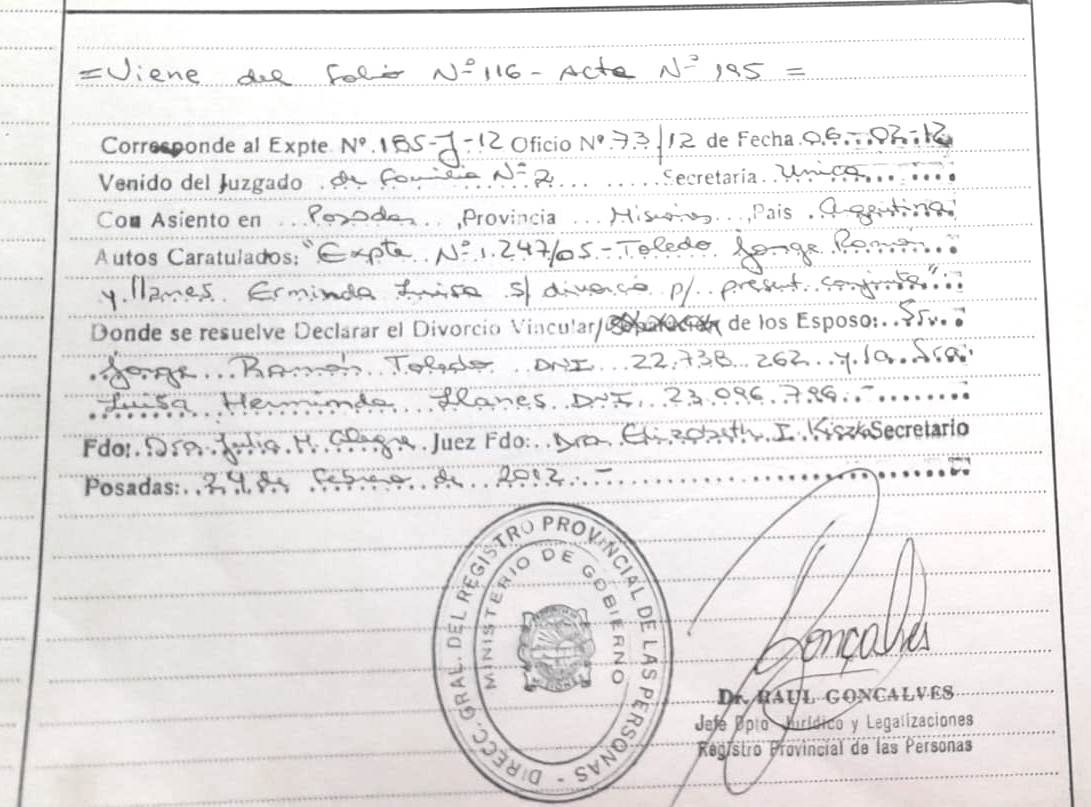 = Viene del Folio Nº 116 - Acta Nº 195 =
Corresponde al Expte Nº.185-J-12 Oficio Nº 73/12 de Fecha 06-02-12
Venido del Juzgado de Familia Nº 2 Secretaria Unica
Con Asiento en Posadas, Provincia Misiones, Pais Argentina
Autos Caratulados: "Expte Nº 1.247/05 - Toledo Jorge Ramón
y Llanes Erminda Luisa s/ divorcio p/ present. conjunta"
Donde se resuelve Declarar el Divorcio Vincular/ de los Esposo: Sr.
Jorge Ramón Toledo DNI 22.738.262 y la Sra.
Luisa Herminda Llanes DNI 23.096.799.-
Fdo: Dra. Julia H. Alegre Juez Fdo: Dra. Elizabeth I. Kiszka Secretario
Posadas: 24 de Febrero de 2012.-
DIRECC. GRAL. DEL REGISTRO PROVINCIAL DE LAS PERSONAS -
MINISTERIO DE GOBIERNO
Gonçalves
Dr. RAUL GONCALVES
Jefe Dpto Jurídico y Legalizaciones
Registro Provincial de las Personas